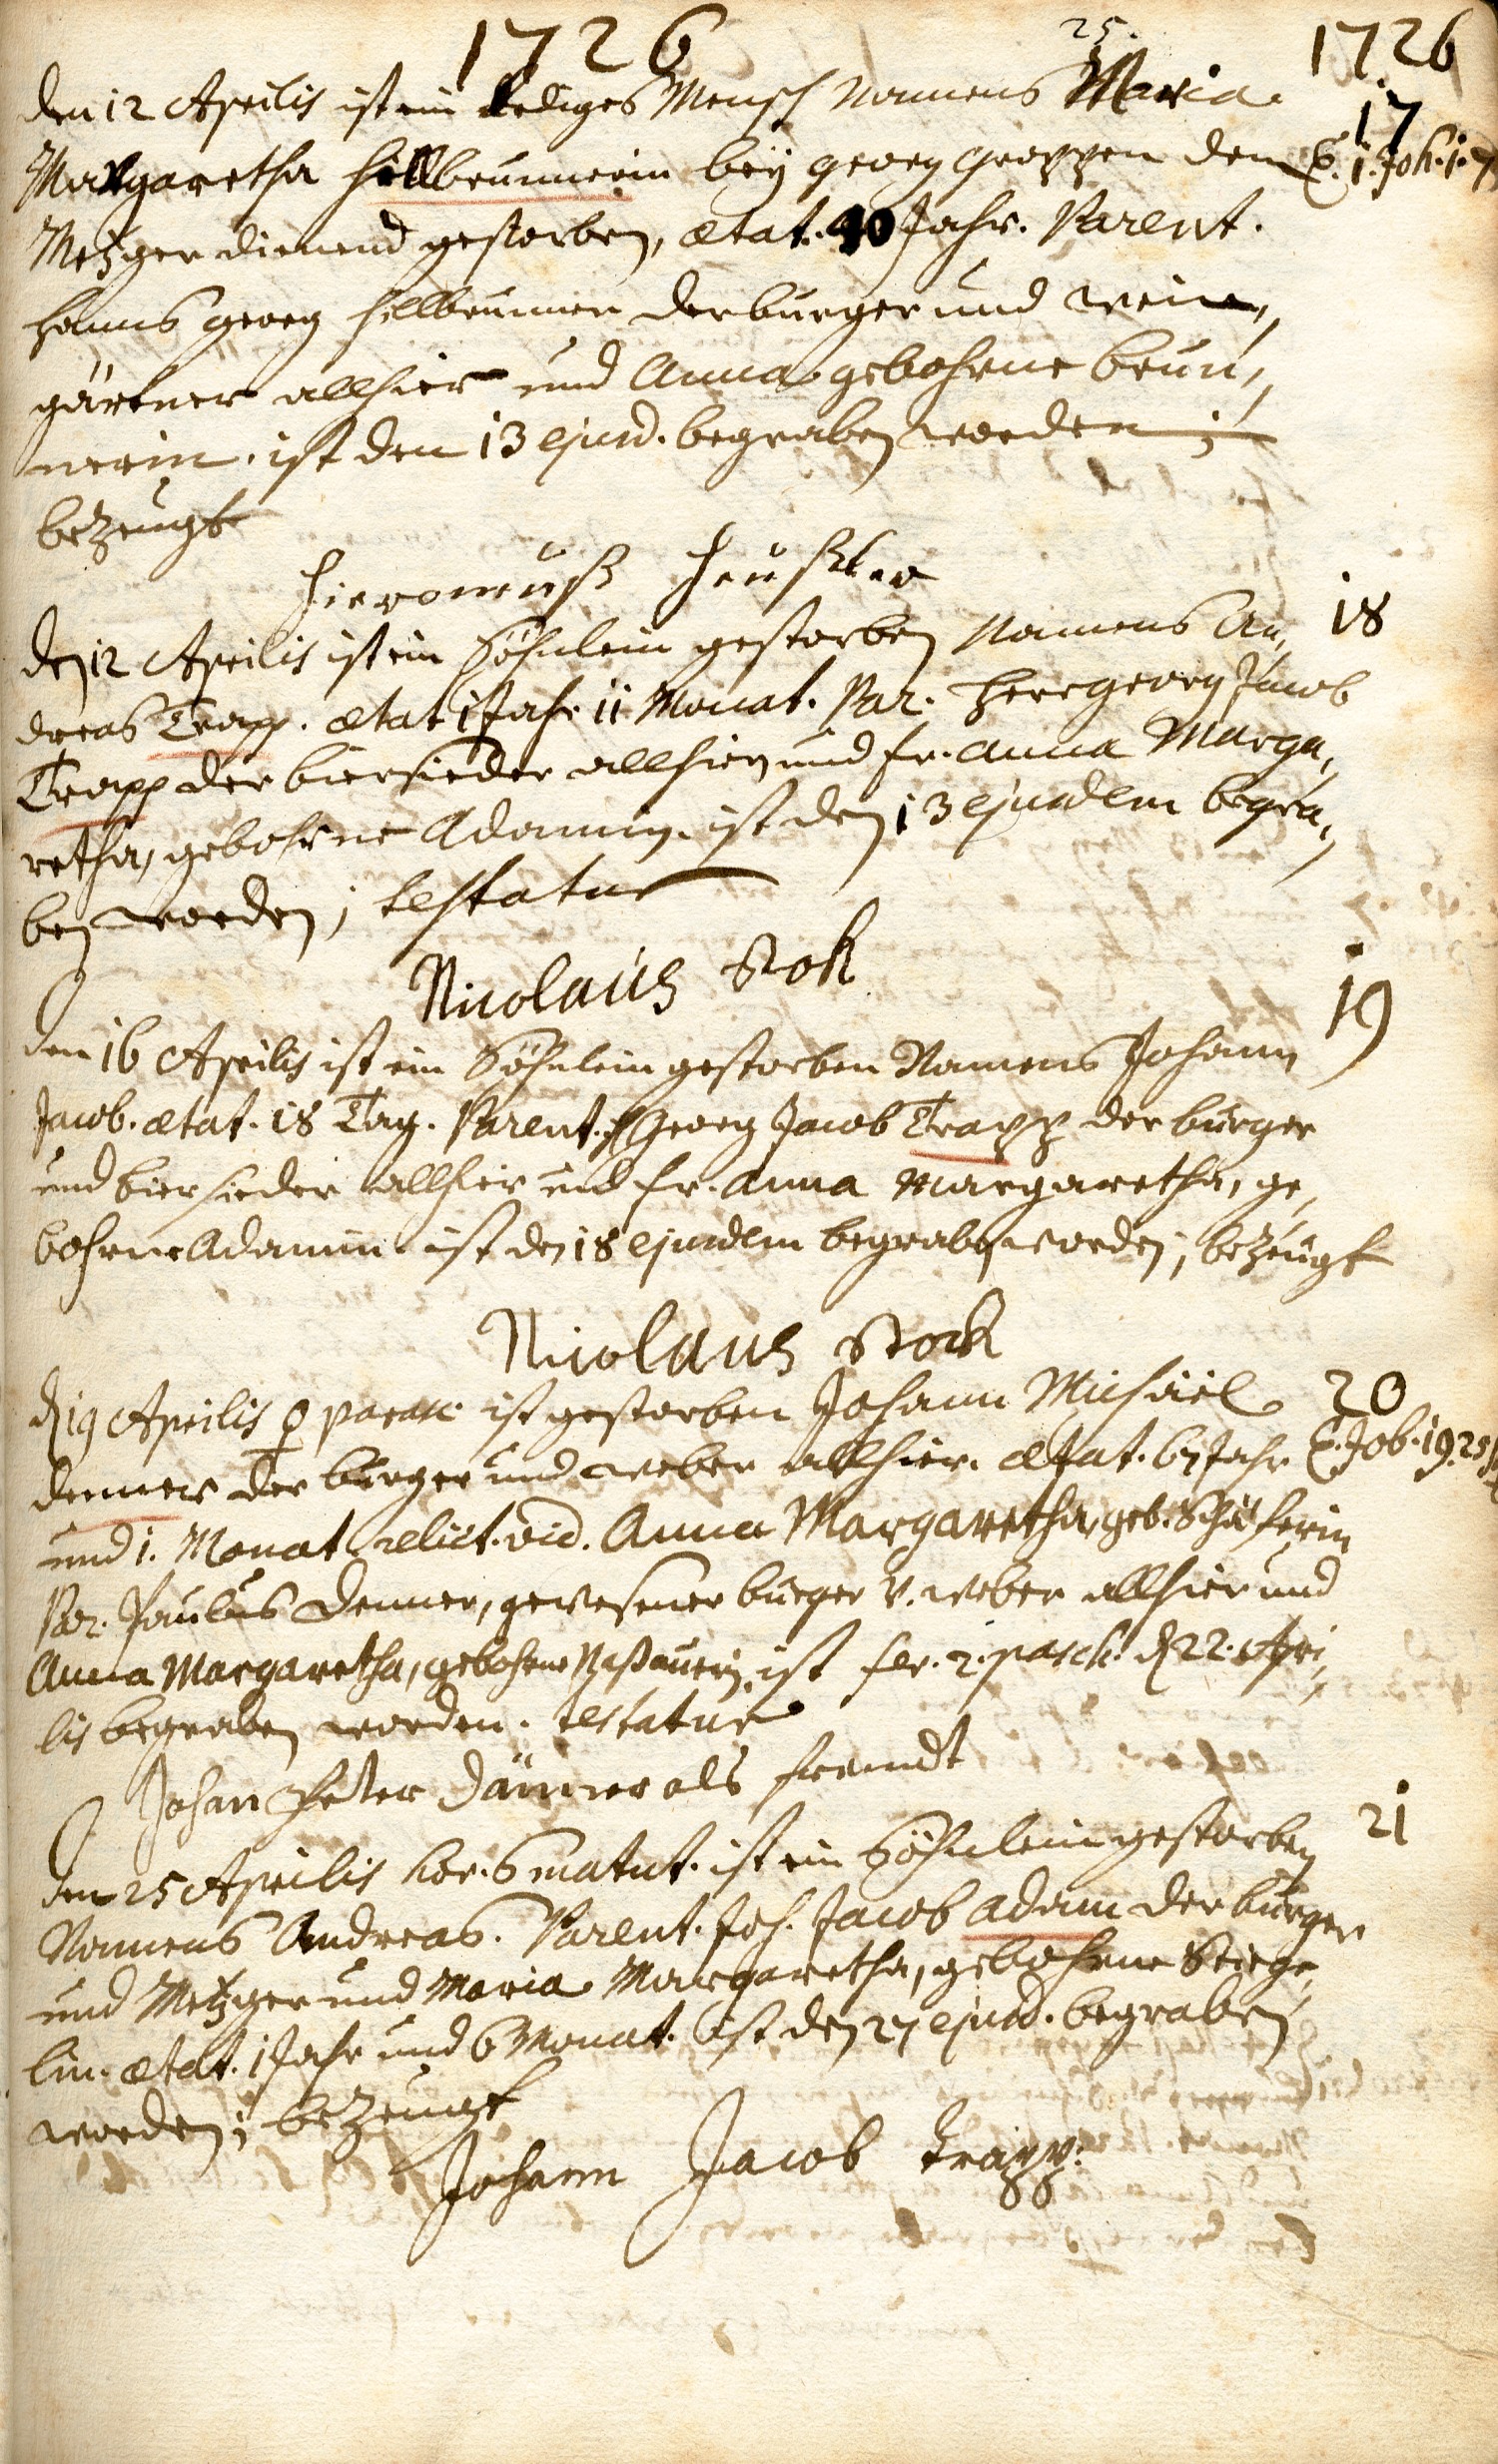 1726 25. 1726
den 12 Aprilis ist ein lediges Mensch Nomens Maria 17
Margaretha Hellbrunnerin bey Georg Groppen dem E. 1. Joh. 1. 7
Metzger dienend gestorben, ætat. 40 Jahr. Parent.
Hanns Georg Hellbrunner der burger und wein,,
gärtner allhier und Anna gebohrne brun,,
nerin. ist den 13 ejusd. begraben worden;
bezeugt
Hieronmuß Heußler
den 12 Aprilis ist ein Söhnlein gestorben Namens An,, 18
dreas Trapp. ætat 1 Jahr 11 Monat. Par. Herr Georg Jacob
Trapp der biersieder allhier und fr. Anna Marga,,
retha, gebohrne Adamin. ist den 13 ejusdem begra,,
ben worden; testatur
Nicolaus Stok
den 16 Aprilis ist ein Söhnlein gestorben Namens Johann 19
Jacob. ætat. 18 Tag. Parent. H Georg Jacob Trapp der burger
und biersieder allhier und fr. Anna Margaretha, ge,,
bohrne Adamin ist den 18 ejusdem begraben worden; bezeugt
Nicolaus Stock
d 19 Aprilis ♀ parasc. ist gestorben Johann Michael 20
Denner der burger und weber allhier. ætat. 67 Jahr E. Job. 19. 25
und 1. Monat relict. vid. Anna Margaretha, geb. Schäfferin
Par. Paulus Denner, gewesener burger v. weber allhier und
Anna Margaretha, gebohrne Naßauerin, ist fer. 2. pasch. d 22. Apri,,
lis begraben worden. testatur
Johan Peter Dänner als freundt
den 25 Aprilis hor. 6 matut. ist ein Söhnlein gestorben 21
Namens Andreas. Parent. Joh. Jacob Adam der burger
und Metzger und Maria Margaretha, gebohrne Stiege,,
lin. ætat. 1 Jahr und 6 Monat. ist den 27 ejusd. begraben
worden; bezeugt
Johann Jacob Trapp.